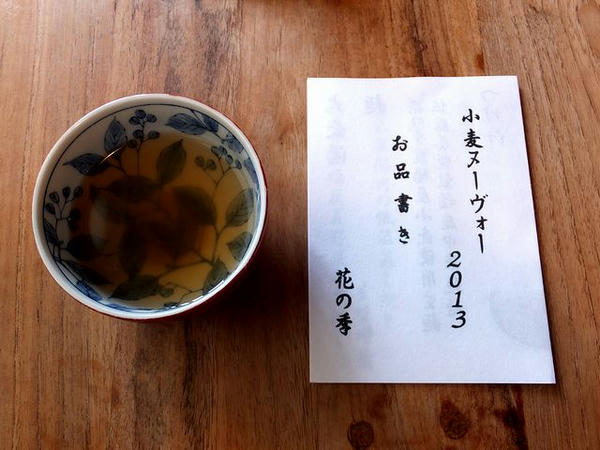 小麦ヌーヴォー 2013
お品書き
花の季